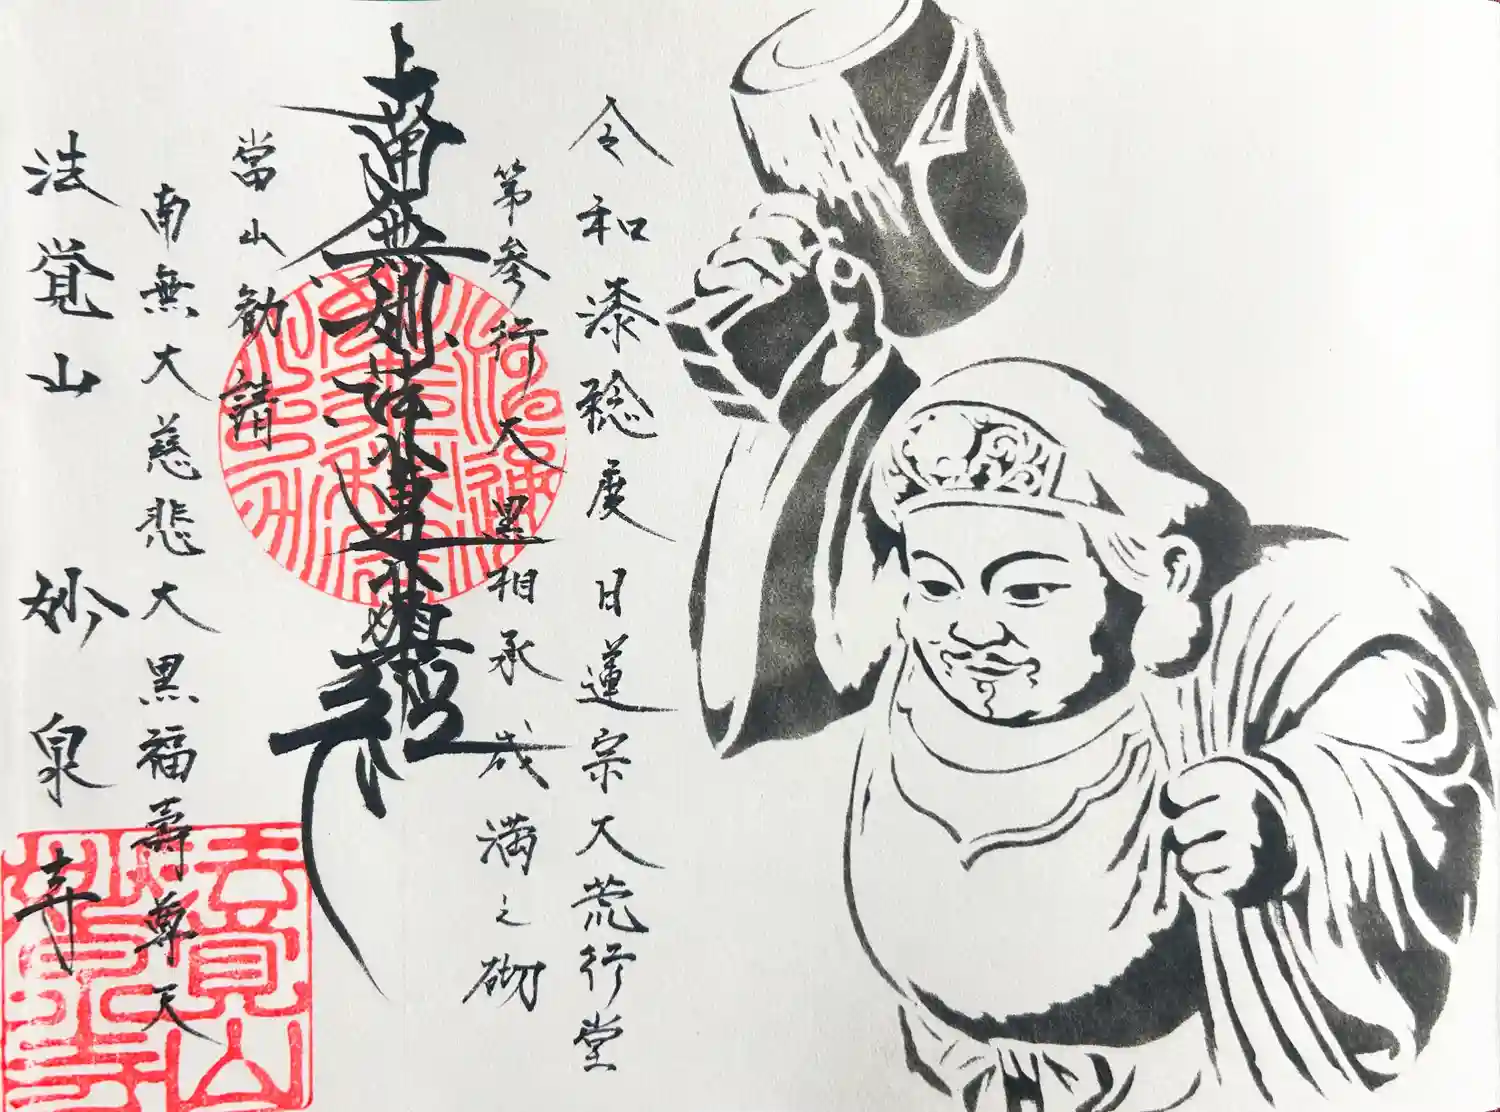 令和漆稔度 日蓮宗大荒行堂
第参行大黒相承成満之砌
南無妙法蓮華経
當山勧請
南無大慈悲大黒福壽尊天
法覚山 妙泉寺
法覚山妙泉寺